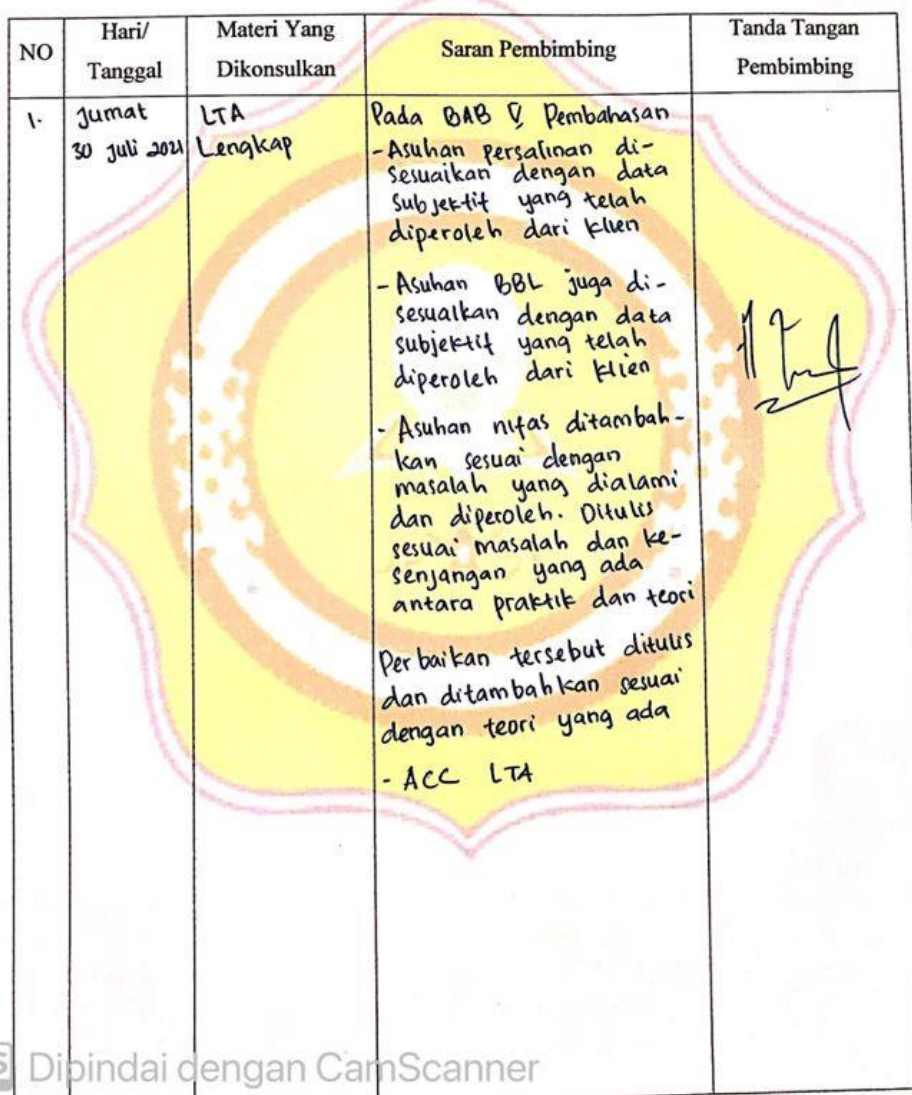 NO
Hari/
Tanggal
Materi Yang
Dikonsulkan
Saran Pembimbing
Tanda Tangan
Pembimbing
1.
Jumat
30 Juli 2021
LTA
Lengkap
Pada BAB V Pembahasan
- Asuhan persalinan di-
sesuaikan dengan data
subjektif yang telah
diperoleh dari klien
- Asuhan BBL juga di-
sesuaikan dengan data
subjektif yang telah
diperoleh dari klien
- Asuhan nifas ditambah-
kan sesuai dengan
masalah yang dialami
dan diperoleh. Ditulis
sesuai masalah dan ke-
senjangan yang ada
antara praktik dan teori
Perbaikan tersebut ditulis
dan ditambahkan sesuai
dengan teori yang ada
- ACC LTA
Dipindai dengan CamScanner